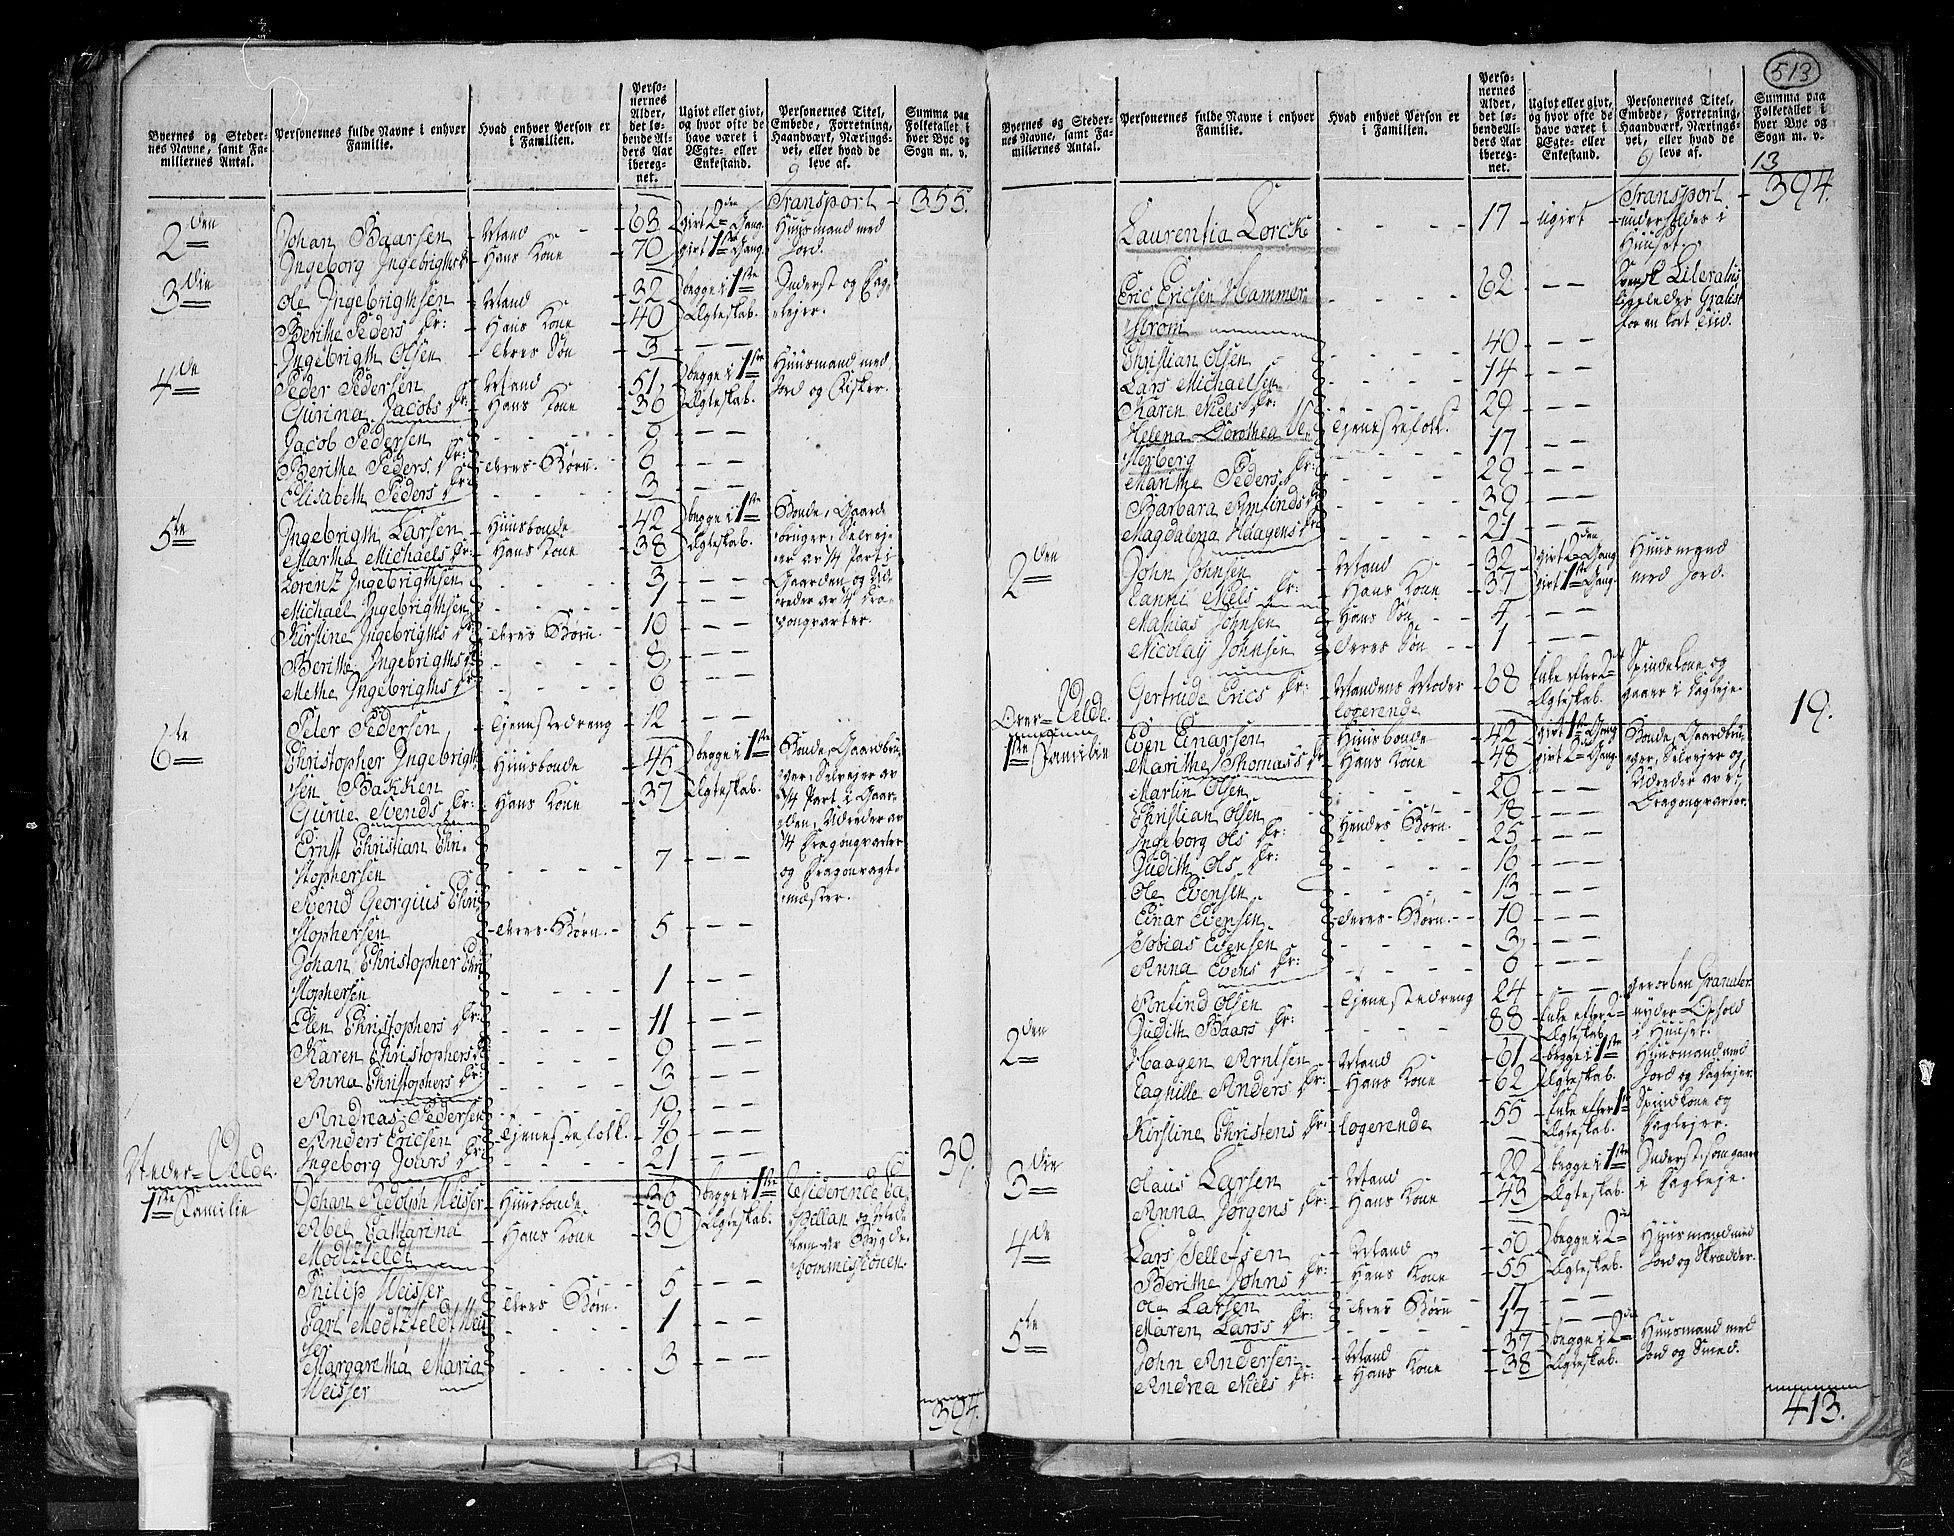 Byernes og Steder-
nes Navne, samt Fa-
miliernes Antal.
Personernes fulde Navne i enhver
Familie.
Hvad enhver Person er
i Familien.
Perso-
nernes
Alder,
det lø-
bende Al-
ders Aar
iberegn-
net.
Ugivt eller givt,
og hvor ofte de
have været i
Ægte- eller
Enkestand.
Personernes Titel,
Embede, Forretning,
Haandværk, Nærings-
vei, eller hvad de
leve af.
Summa paa
Folketallet i
hver Bye og
Sogn m. v.
9
Transport - 355.
2den Johan Baarsen - Mand - 63 givt 2den Gang Huusmand med
Ingeborg Ingebrigthsdr - Hans Kone - 70 givt 1ste Gang Jord.
3die Ole Ingebrigthsen - Mand - 32 begge i 1ste Inderst og Dag-
Berithe Peders Dr: - Hans Kone - 40 Ægteskab. lejer.
Ingebrigth Olsen - deres Søn - 3 - -
4de Peder Pedersen - Mand - 51 begge i 1ste Huusmand med
Gurina Jacobs Dr: - Hans Kone - 36 Ægteskab. Jord og Fisker.
Jacob Pedersen - - - 9 - -
Berithe Peders Dr: - deres Børn. - 6 - -
Elisabeth Peders Dr: - - - 3 - -
5te Ingebrigth Larsen - Huusbonde - 42 begge i 1ste Bonde, Gaard
Martha Michaels Dr: - Hans Kone - 38 Ægteskab. bruger, Selveje-
er av 1/4 Part i
Lorentz Ingebrigthsen - - - 3 - - Gaarden og Ud-
Michael Ingebrigthsen - - - 1 - - reder av 1/4 Dra-
Kirstine Ingebrigths Dr: - deres Børn. - 10 - - gonqvarter.
Berithe Ingebrigths Dr - - - 8 - -
Methe Ingebrigths Dr - - - 6 - -
Peter Pedersen - Tjenestedreng - 12 - -
6te Christopher Ingebrigth-
sen Bakken - Huusbonde - 45 begge i 1ste Bonde, Gaardbru-
Gurue Svends Dr: - Hans Kone - 37 Ægteskab. ger, Selvejer av
1/4 Part i Gaar-
den, Udreder av
Ernst Christian Chri-
stophersen - - - 7 - - 1/4 Dragonqvarter
og Dragonvagt-
mester.
Svend Georgius Chri-
stophersen - deres Børn. - 5 - -
Johan Christopher Chri-
stophersen - - - 1 - -
Elen Christophers Dr: - - - 11 - -
Karen Christophers Dr - - - 9 - -
Anna Christophers Dr: - - - 3 - -
Andreas Pedersen - - - 19 - -
Anders Ericsen - Tjenestefolk. - 16 - -
Ingeborg Joars Dr - - - 21 - - 39.
Neder-Velde.
1ste Familie Johan Adolph Weisser Huusbonde. - 36 begge i 1ste Residerende Ca-
Abel Catharina
Modtzfeldt - Hans Kone - 30 Ægteskab. pellan og Med-
lem av Bygde-
Commissionen.
Philip Weisser - - - 5 - -
Carl Modtzfeldt Weis-
ser - deres Børn. - 1 - -
Marggretha Maria
Weisser - - - 3 - -
394.
513
Byernes og Steder-
nes Navne, samt Fa-
miliernes Antal.
Personernes fulde Navne i enhver
Familie.
Hvad enhver Person er
i Familien.
Perso-
nernes
Alder,
det lø-
bende Al-
ders Aar
ibereg-
net.
Ugivt eller givt,
og hvor ofte de
have været i
Ægte- eller
Enkestand.
Personernes Titel,
Embede, Forretning,
Haandværk, Nærings-
vei, eller hvad de
leve af.
Summa paa
Folketallet i
hver Bye og
Sogn m. v.
9
13
Transport - 394.
Laurentia Lorck - - - 17 - ugivt - underholdes i
Huuset.
Eric Ericsen Hammer-
strøm - - - 62 - - Svensk Literatus
ligeledes Gratist
for en kort Tiid.
Christian Olsen - - - 40 - -
Lars Michaelsen - - - 14 - -
Karen Niels Dr: - - - 29 - -
Helena Dorothea We-
sterberg - Tjenestefolk. - 17 - -
Marithe Peders Dr: - - - 29 - -
Barbara Arnfinds Dr - - - 39 - -
Magdalena Haagens Dr - - - 21 - -
2den John Johnsen - Mand - 32 givt 2den Gang Huusmand
Canni Niels Dr: - Hans Kone - 37 givt 1ste Gang med Jord.
Mathias Johnsen - Hans Søn - 4 - -
Nicolay Johnsen - deres Søn - 1 - -
Gertrude Erics Dr: - Mandens Moder - 68 Enke efter 2det Spindekone og
logerende Ægteskab. gaaer i Dagleje. 19.
Over-Velde.
1ste Familie Even Einarsen - Huusbonde - 42 givt 1ste Gang Bonde, Gaardbru-
Marithe Thomass Dr - Hans Kone - 48 givt 2den Gang. ger, Selvejer og
Martin Olsen - - - 20 - - Udreder av et
Christian Olsen - - - 18 - - Dragonqvarter.
Ingeborg Ols Dr: - Hendes Børn. - 25 - -
Judith Ols Dr: - - - 16 - -
Ole Evensen - - - 13 - -
Einar Evensen - deres Børn. - 10 - -
Tobias Evensen - - - 3 - -
Anna Evens Dr: - - - 6 - -
Arnfind Olsen - Tjenestedreng - 24 - - Hvorben Granater
Judith Baars Dr: - - - 88 Enke efter 2det nyder Ophold
Ægteskab. i Huuset.
2den Haagen Arntsen - Mand - 61 begge i 1ste Huusmand med
Eaghille Anders Dr: - Hans Kone - 62 Ægteskab. Jord og Daglejer.
Kirstine Christens Dr: - logerende - 55 Enke efter 1ste Spindekone og
Ægteskab. Daglejer.
3die Claus Larsen - Mand - 22 begge i 1ste Inderst, som gaar
Anna Jørgens Dr: - Hans Kone - 43 Ægteskab. i Dagleje.
4de Lars Tellefsen - Mand - 50 begge i 2det Huusmand med
Berithe Johns Dr: - Hans Kone - 55 Ægteskab. Jord og Skrædder.
Ole Larsen - deres Børn - 11 - -
Maren Larss Dr: - 17 - -
5te John Andersen - Mand - 37 begge i 2det Huusmand med
Andrea Niels Dr: - Hans Kone - 38 Ægteskab. Jord og Smed.
413.